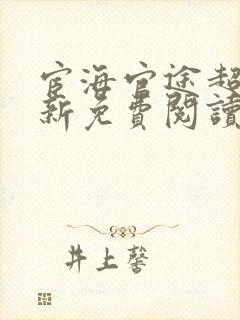 宦海官途超
新免費閱讀
井上馨